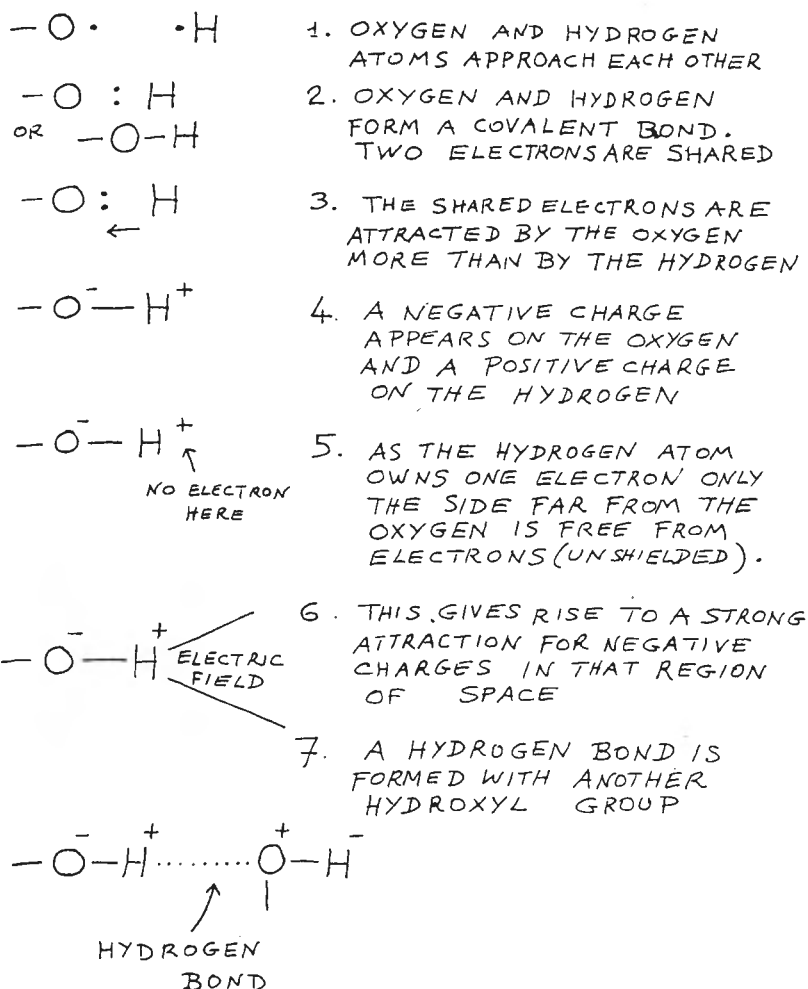 – O · · H
1. OXYGEN AND HYDROGEN
ATOMS APPROACH EACH OTHER
– O : H
OR – O – H
2. OXYGEN AND HYDROGEN
FORM A COVALENT BOND.
TWO ELECTRONS ARE SHARED
– O : H
←
3. THE SHARED ELECTRONS ARE
ATTRACTED BY THE OXYGEN
MORE THAN BY THE HYDROGEN
– O⁻ – H⁺
4. A NEGATIVE CHARGE
APPEARS ON THE OXYGEN
AND A POSITIVE CHARGE
ON THE HYDROGEN
– O⁻ – H⁺
NO ELECTRON
HERE
5. AS THE HYDROGEN ATOM
OWNS ONE ELECTRON ONLY
THE SIDE FAR FROM THE
OXYGEN IS FREE FROM
ELECTRONS (UNSHIELDED).
– O⁻ – H⁺
ELECTRIC
FIELD
6. THIS GIVES RISE TO A STRONG
ATTRACTION FOR NEGATIVE
CHARGES IN THAT REGION
OF SPACE
7. A HYDROGEN BOND IS
FORMED WITH ANOTHER
HYDROXYL GROUP
– O⁻ – H⁺ ········· O⁺ – H⁻
HYDROGEN
BOND